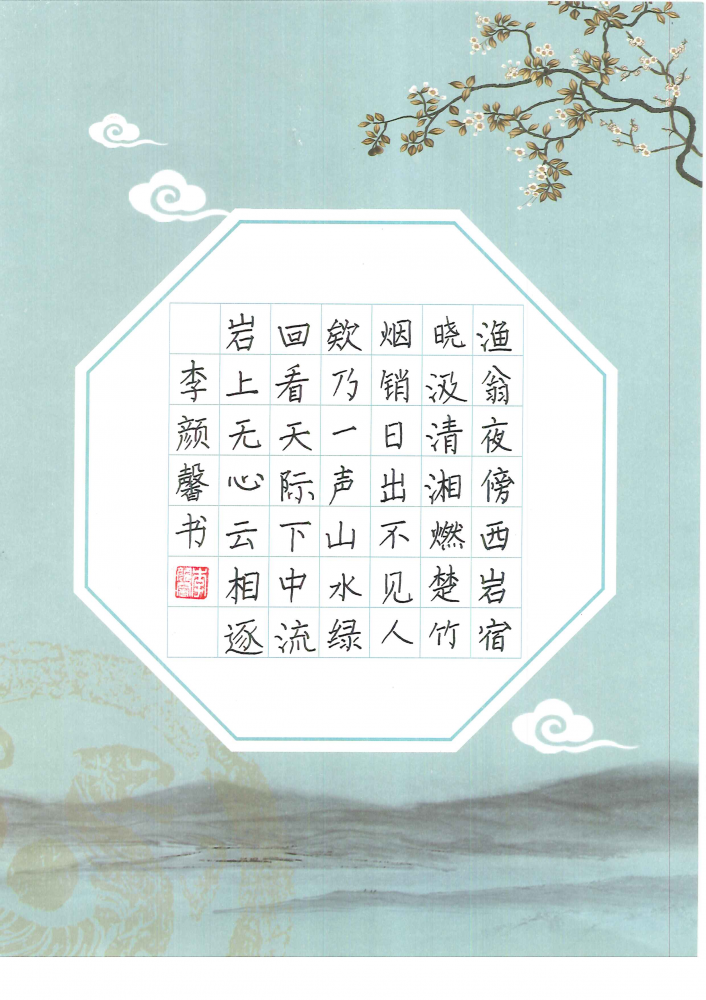 渔翁夜傍西岩宿
晓汲清湘燃楚竹
烟销日出不见人
欸乃一声山水绿
回看天际下中流
岩上无心云相逐
李颜馨书